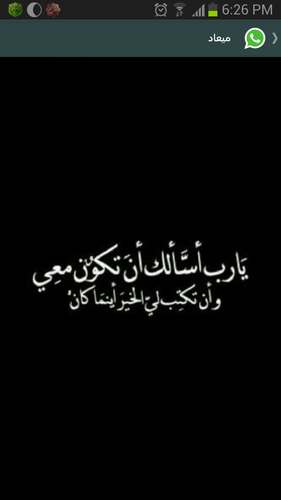 6:26 PM
ميعاد
يَارب أسَّألك أنَ تكوُن معِي
وأن تكتِب ليّ الخيرَ أينمَا كانْ